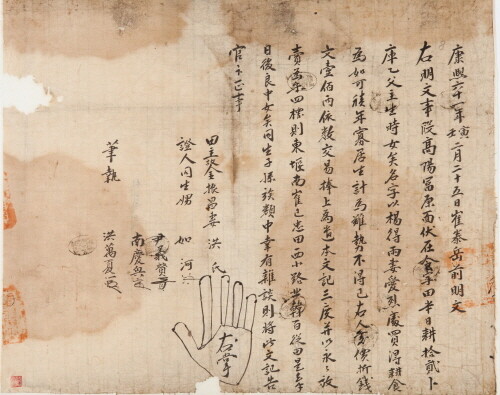 康熙六十一年壬寅二月二十五日崔泰岳前明文
右明文事段高陽冨原面伏在字田半日耕拾貳卜
庫乙父主生時女矣名字以楊得雨妻愛烈處買得耕食
為如可積年寡居生計為難勢不得已右人處價折錢
文壹佰兩依數交易捧上為遣本文記三度并以永〻放
賣為乎四標則東堰南崔己忠田西小路北韓百從田是乎
日後良中女矣同生子孫族類中幸有雜談則將此文記告
官卞正事
田主故金振昌妻洪氏
右掌
證人同生娚如河
尹義
南慶
筆執洪萬夏